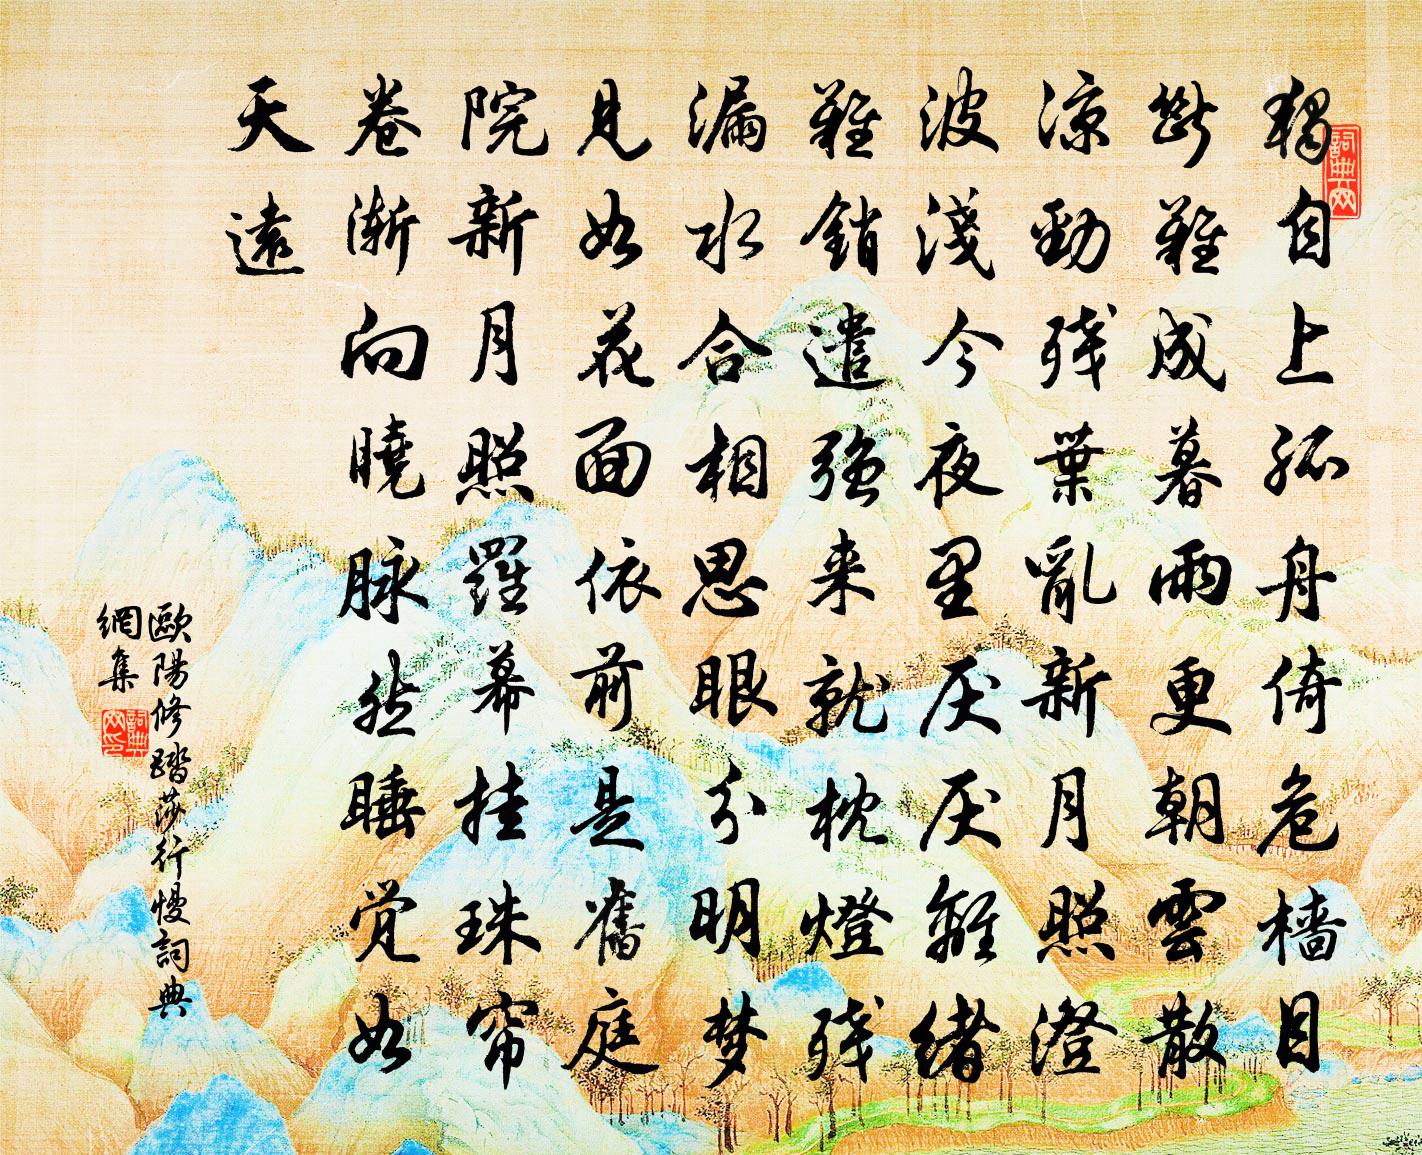 獨自上孤舟倚危檣目
斷難成暮雨更朝雲散
涼勁殘葉亂新月照澄
波淺今夜里厌厌離緒
難銷遣強来就枕燈殘
漏水合相思眼分明梦
見如花面依前是舊庭
院新月照羅幕挂珠帘
卷渐向曉脉然睡觉如
天遠
歐陽修踏莎行慢詞典
網集
詞典網
詞典網印